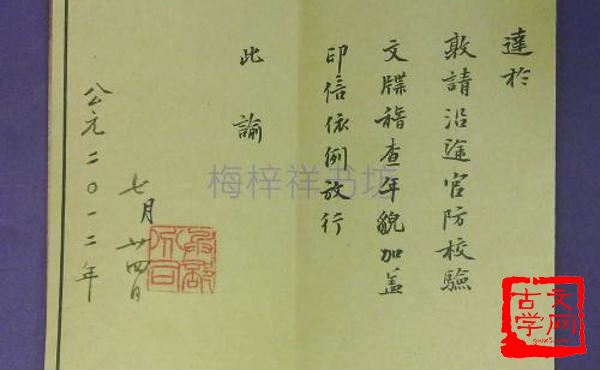 達於
敦請沿途官防校驗
文牒稽查年貌加盖
印信依例放行
此諭
公元二〇一二年
七月廿四日
梅梓祥书坊
古文学网